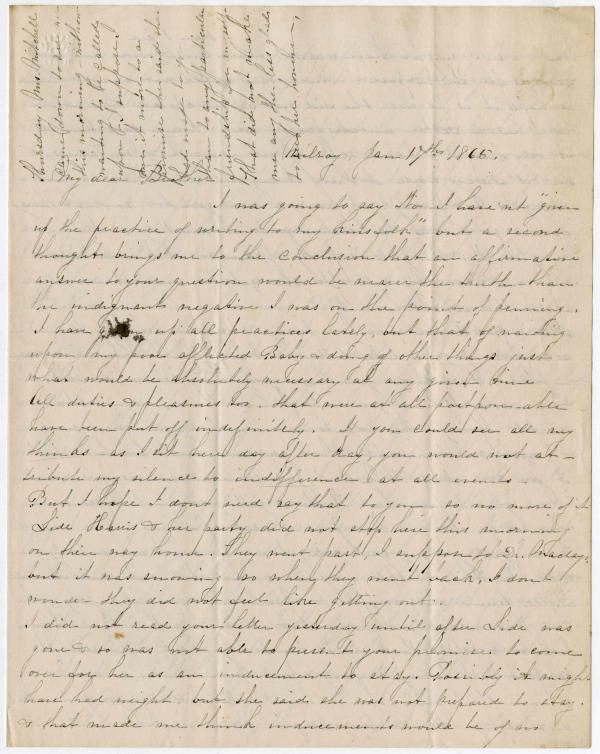 Milroy Jan 17th 1865.
My dear Brother
I was going to say No I have n't "given
up the practice of writing to my Kinsfolk" but a second
thought brings me to the conclusion that an affirmative
answer to your question would be nearer the truth than
the indignant negative I was on the point of penning.
I have up all practices lately, but that of waiting
upon my poor afflicted Baby & doing of other things just
what would be absolutely necessary at any given time
All duties & pleasures too. that were at all postpone-able
have been put off indefinitely. If you could see all my
thinks as I sit here day after day, you would not at-
tribute my silence to indifference at all events.
But I hope I dont need say that to you so no more of it
Side Harris & her party did not stop here this morning
on their way home. They went past, I suppose to Dr. Maclays
but it was snowing so when they went back, I dont
wonder they did not feel like getting out.
I did not read your letter yesterday until after Side was
gone & so was not able to present your promise to come
over for her as an inducement to stay. Possibly it might
have had weight but she said she was not prepared to stay.
& that made me think inducements would be of no
Thursday. Mrs. Mitchell
came down to see me
this morning without
waiting to be called
upon. I suppose I
owe it more to a
promise she said she
had made to
than to any particular
friendship for myself
That did not make
me any the less glad
to see her however.